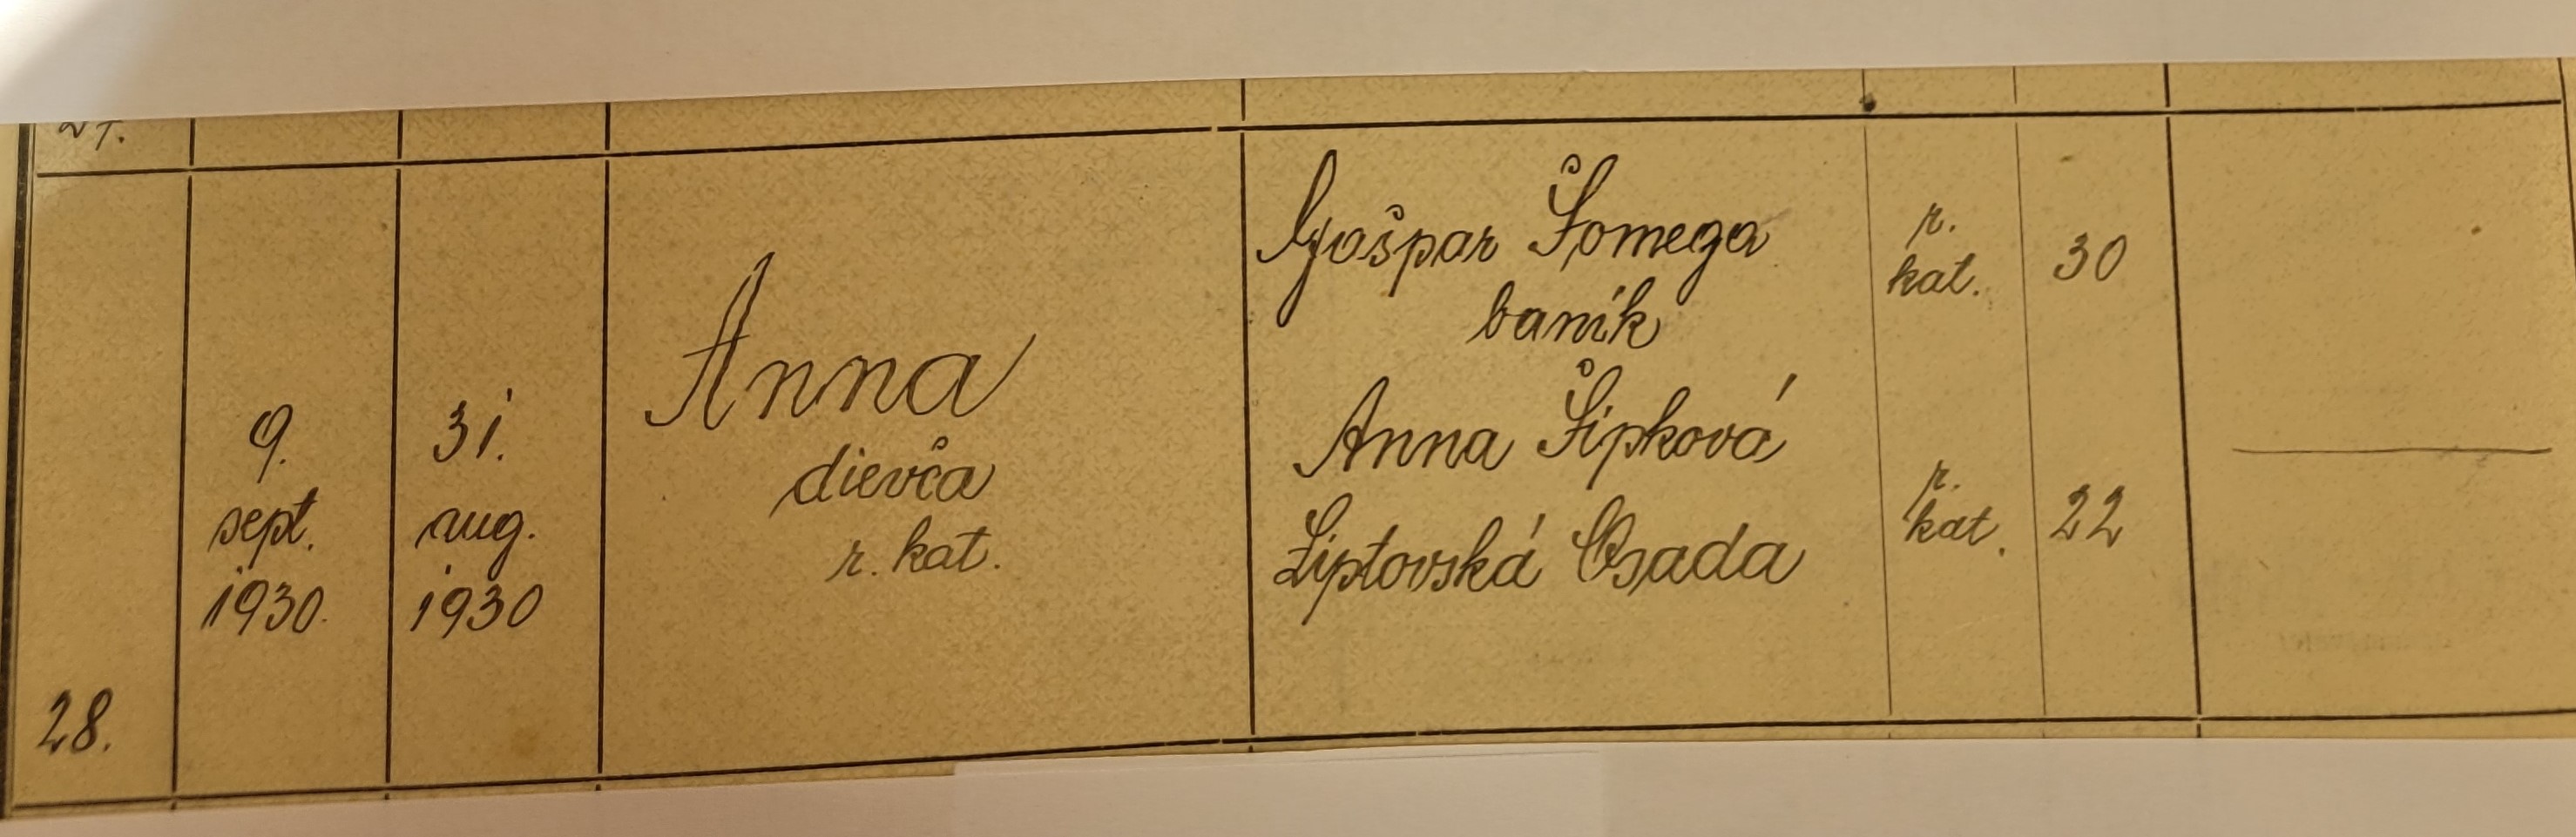 28.
9.
sept.
1930.
31.
aug.
1930
Anna
dievča
r. kat.
Gašpar Šomega
baník
Anna Šipková
Liptovská Osada
r.
kat.
30
r.
kat.
22